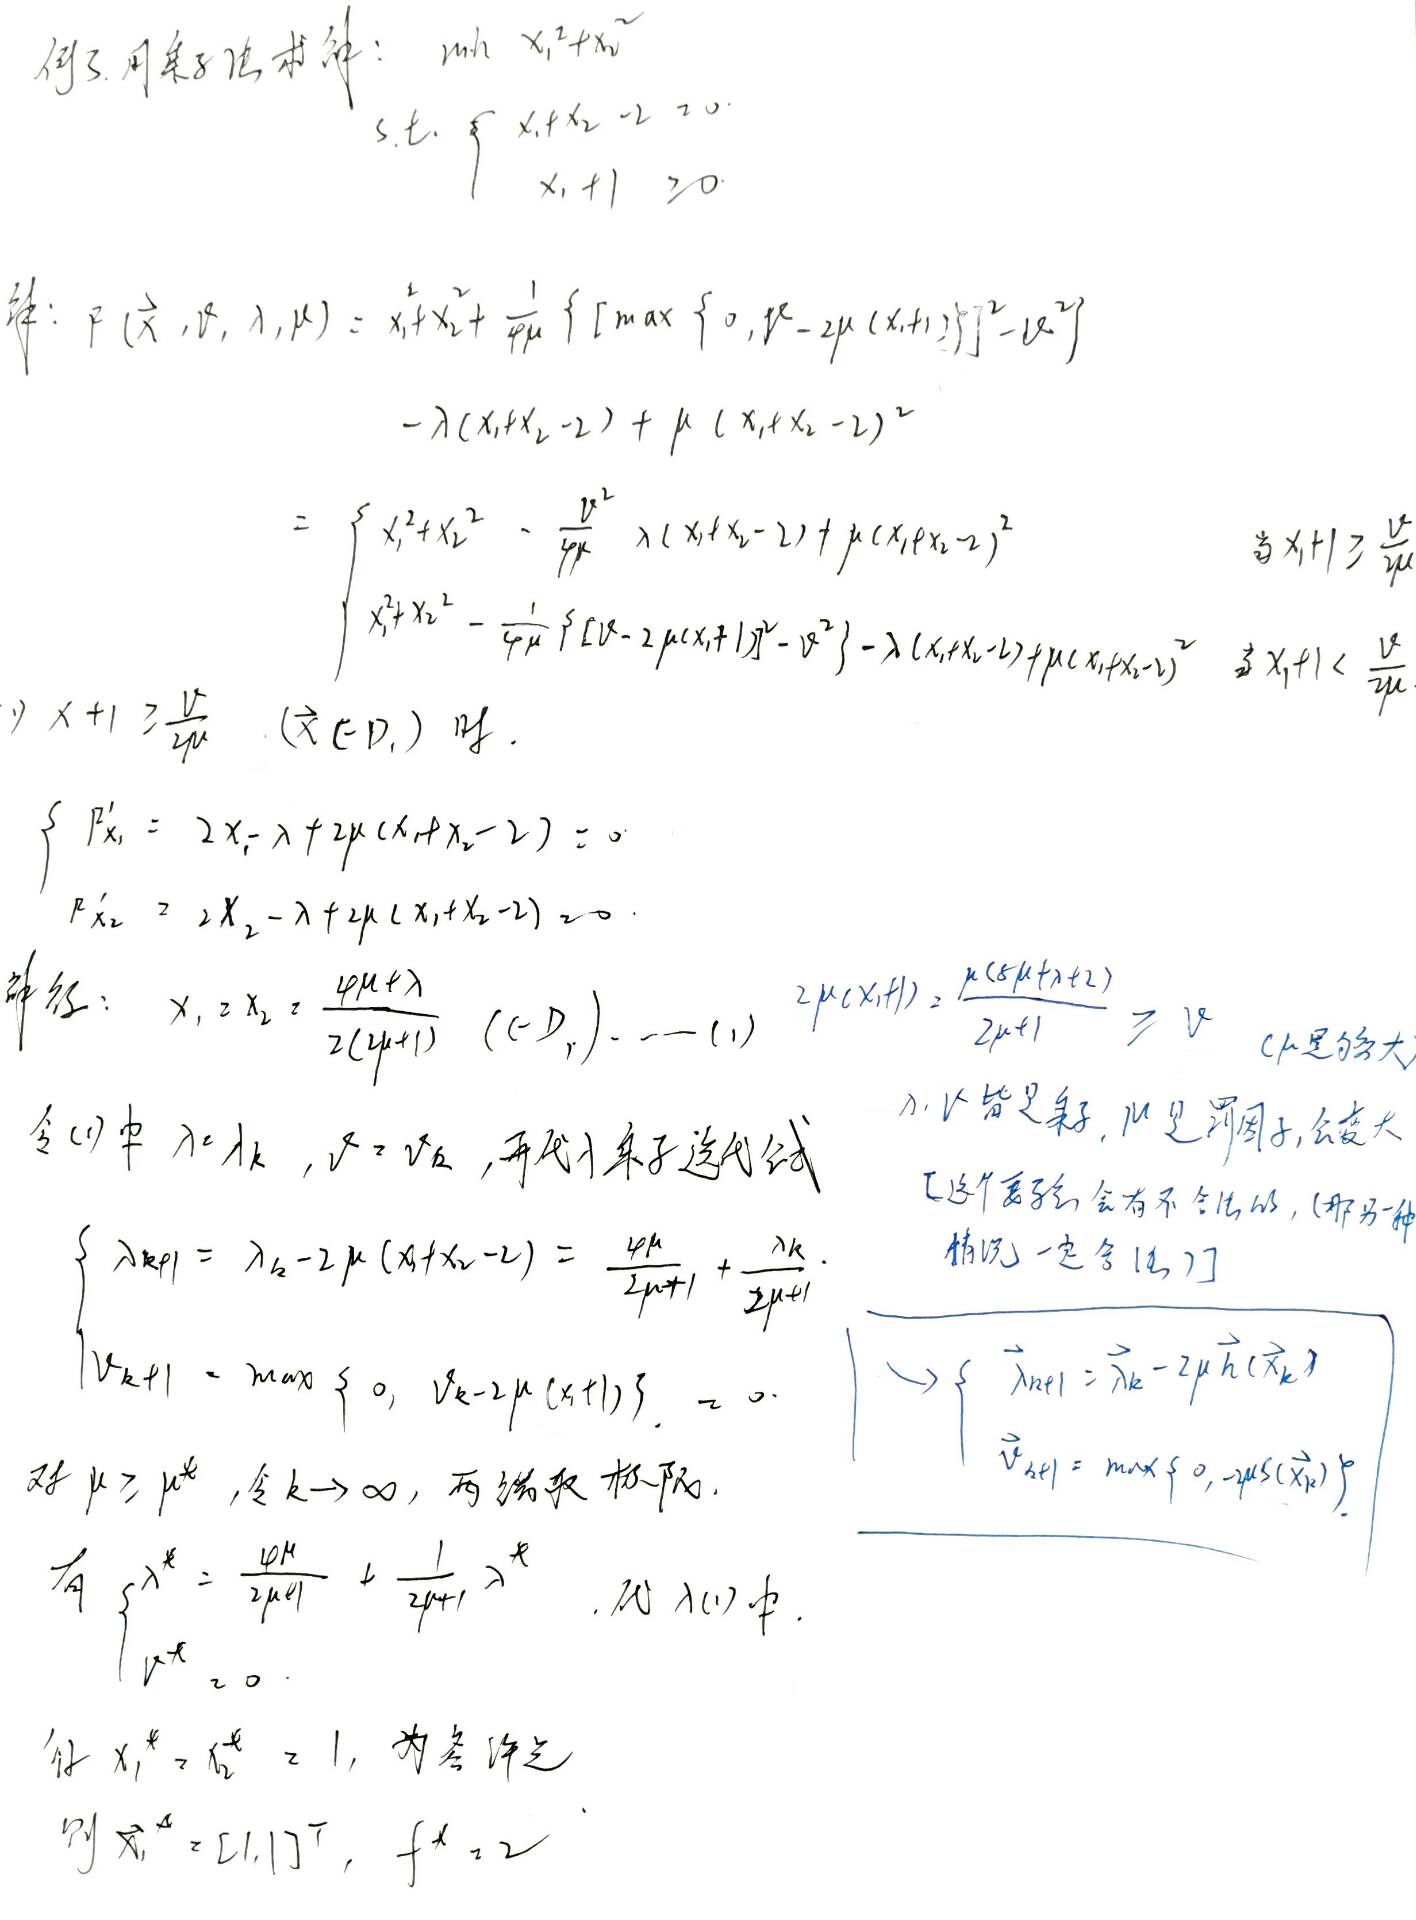 例3. 用乘子法求解: min x₁²+x₂²
s.t. { x₁+x₂-2=0.
x₁+1 ≥0.
解: F(x⃗,v,λ,μ) = x₁²+x₂²+ 1/4μ {[max{0,v-2μ(x₁+1)}]²-v²}
-λ(x₁+x₂-2)+μ(x₁+x₂-2)²
= { x₁²+x₂² - v²/4μ λ(x₁+x₂-2)+μ(x₁+x₂-2)² 当x₁+1≥ v/2μ
x₁²+x₂² - 1/4μ {[v-2μ(x₁+1)]²-v²}-λ(x₁+x₂-2)+μ(x₁+x₂-2)² 当x₁+1< v/2μ.
1) x+1 ≥ v/2μ (x⃗∈D₁) 时.
{ F'x₁ = 2x₁-λ+2μ(x₁+x₂-2)=0
F'x₂ = 2x₂-λ+2μ(x₁+x₂-2)=0.
解得: x₁=x₂= (4μ+λ)/2(2μ+1) (∈D₁)……(1)
2μ(x₁+1)= μ(8μ+λ+2)/(2μ+1) ≥ v (μ足够大)
λ.v皆是乘子, μ是罚因子,会变大
[这个 会有不合法的, (那另一种
情况一定合法)]
令(1)中 λ=λk, v=vk, 再代入乘子迭代公式
{ λk+1 = λk-2μ(x₁+x₂-2) = 4μ/(2μ+1) + λk/(2μ+1).
vk+1 = max{0, vk-2μ(x₁+1)}. = 0.
→{ λ⃗k+1 = λ⃗k-2μh⃗(x⃗k)
v⃗k+1 = max{0,-2μS(x⃗k)}.
对 μ≥μ*, 令k→∞, 两端取极限.
有 { λ* = 4μ/(2μ+1) + 1/(2μ+1) λ* . 代入(1)中.
v* = 0.
得 x₁*=x₂* = 1, 为容许点
则 x⃗₁*=[1,1]ᵀ, f*=2.